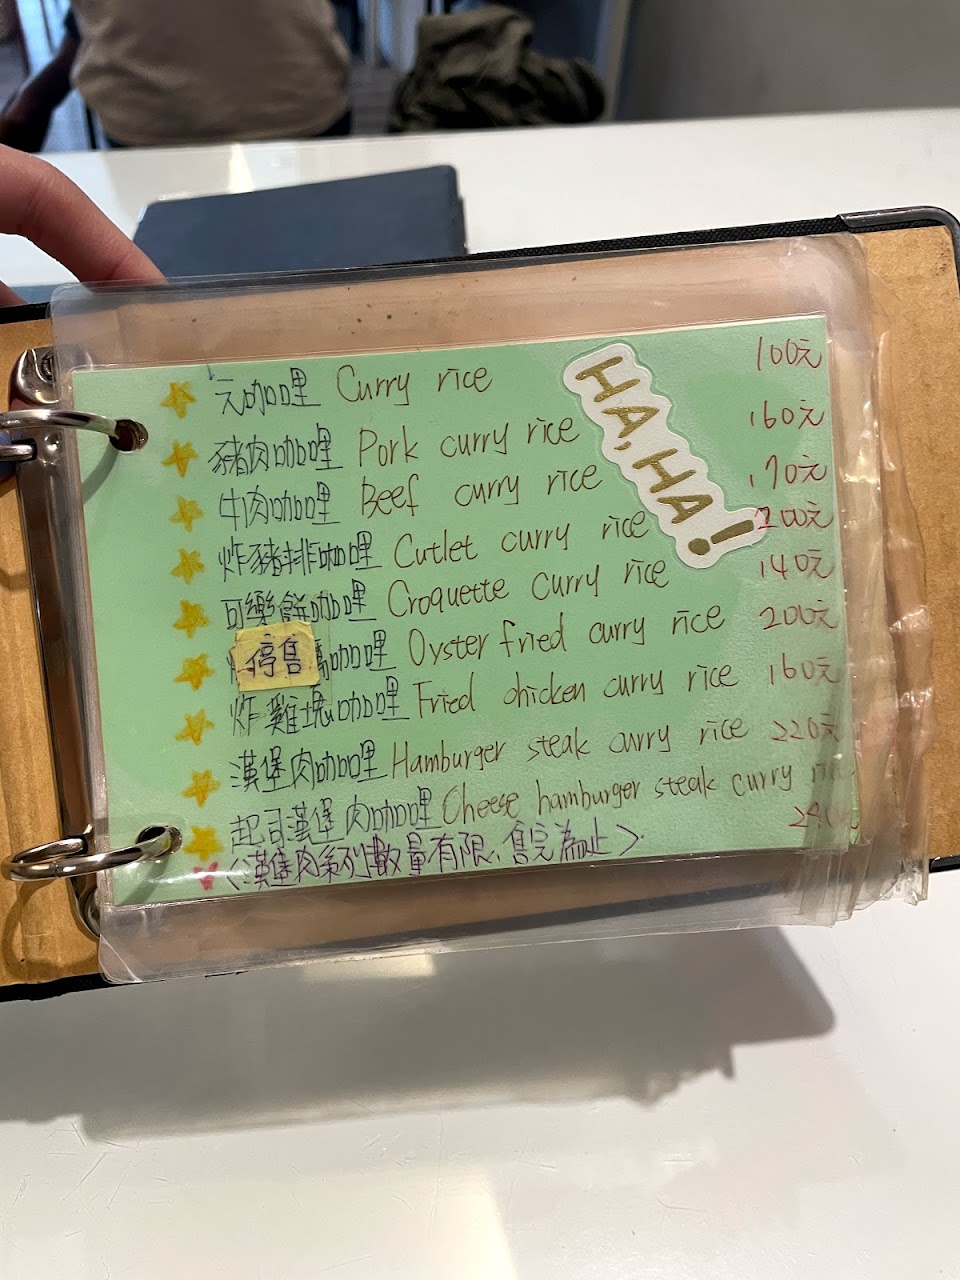 元咖哩 Curry rice 100元
豬肉咖哩 Pork curry rice 160元
牛肉咖哩 Beef curry rice 170元
炸豬排咖哩 Cutlet curry rice 200元
可樂餅咖哩 Croquette curry rice 140元
停售 咖哩 Oyster fried curry rice 200元
炸雞塊咖哩 Fried chicken curry rice 160元
漢堡肉咖哩 Hamburger steak curry rice 220元
起司漢堡肉咖哩 Cheese hamburger steak curry
<漢堡肉系列數量有限、售完為止>
HA, HA!